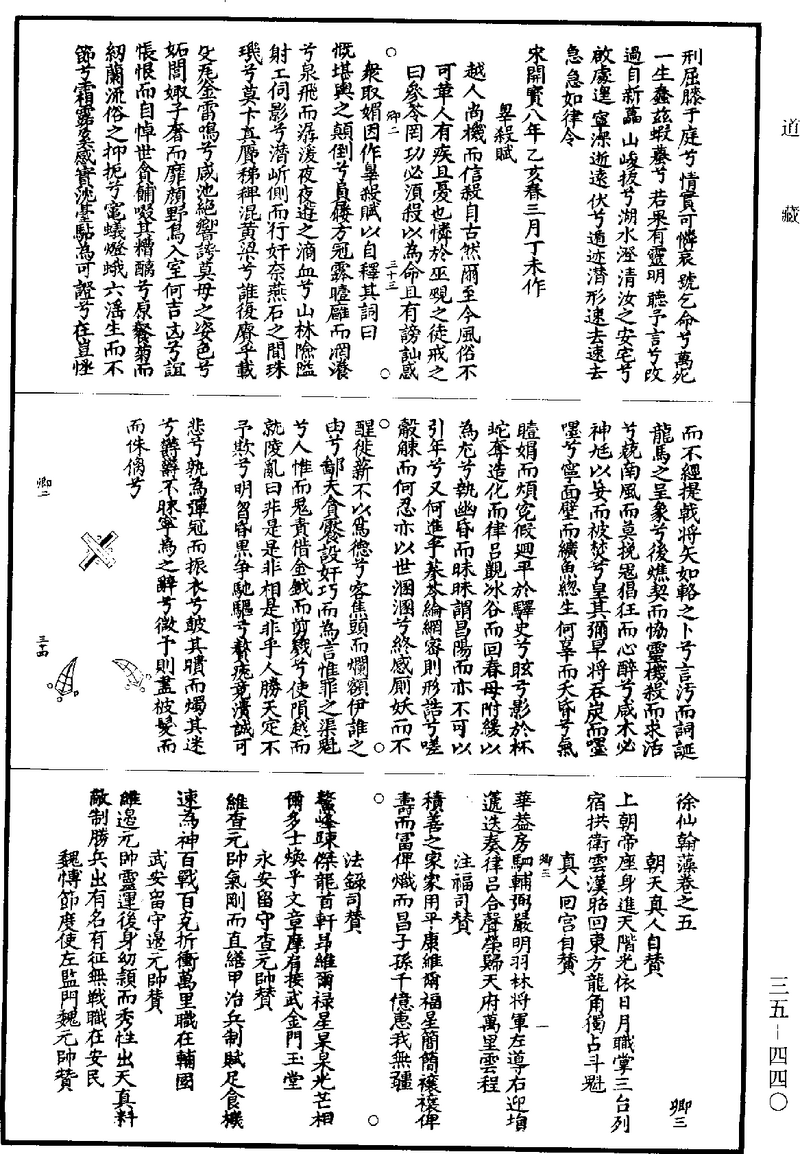 道藏
刑屈膝于庭兮情實可憐哀號乞命兮萬死
一生蠢茲蝦蟇兮若果有靈明聽予言兮改
過自新蠶山峻拔兮湖水澄清汝之安宅兮
啟處運寧深逝遠伏兮遁迹潛形速去速去
急急如律令
宋開寶八年乙亥春三月丁未作
辠殺賦
越人尚機而信殺自古然爾至今風俗不
可華人有疾且憂也憐於巫覡之徒戒之
曰參苓罔功必須殺以為命且有謗訕感
卿二 三十三
衆取媚因作辠殺賦以自釋其詞曰
慨堪輿之顛倒兮員履方冠露曀曬而溷濃
兮泉飛而潺湲夜夜遊之滴血兮山林險隘
射工伺影兮潛㟁側而行奸奈燕石之間珠
璣兮莫卞真贋稊稗混黃粱兮誰後賡乎載
殳瓦釜雷鳴兮咸池絕響誇莫母之姿色兮
妬閭娵子奢而靡顏野鳥入室何吉㓙兮誼
悵恨而自悼世貪餔啜其糟醨兮原餐菊而
紉蘭流俗之抑扼兮竃蟻燈蛾六滛生而不
節兮霜露夤感實沈臺駘為可證兮在豈怪
而不經提戟將矢如輅之卜兮言汚而詞誕
龍馬之呈象兮後爇契而恊靈機殺而求活
兮競南風而莫挽冠倡狂而心醉兮咸木必
神尫以妄而被焚兮皇其彌旱將吞炭而噁
嚜兮寧面壁而纊魚緫生何辜而夭昏兮氣
曀焆而煩寃假迴平於驛史兮眩兮影於杯
蛇奪造化而律呂觀冰谷而回春毋附緩以
為尤兮執幽昏而昧昧謂昌陽而亦不可以
引年兮又何進寧棊本綸網密則形誥兮嗟
觳觫而何忍亦以世溷溷兮終感厠妖而不
醒徙薪不以爲德兮客焦頭而爛額伊誰之
由兮鄙夫貪饕設奸巧而為言惟罪之渠魁
兮人惟而鬼責借金鉞而剪戮兮使隕越而
就陵亂曰非是是非相是非乎人勝天定不
予欺兮明智昏黒争馳驅兮贅疣竟潰誠可
悲兮孰為彈冠而振衣兮皷其瞶而燭其迷
兮爵爵不眯寧為之辭兮微予則盡被髮而
而侏儷兮
卿二 三十四
徐仙翰藻卷之五 卿三
朝天真人自贊
上朝帝座身進天階光依日月職掌三台列
宿拱衛雲漢昭回東方龍角獨占斗魁
真人囘宮自贊
華葢房駟輔弼嚴明羽林將軍左導右迎塤
卿三 一
篪迭奏律呂合聲榮歸天府萬里雲程
注福司贊
積善之家家用平康維爾福星簡簡穰穰俾
壽而富俾熾而昌子孫千億惠我無疆
法錄司贊
鰲峰踈傑龍首軒昂維爾禄星杲杲光芒相
爾多士煥乎文章摩肩接武金門玉堂
永安留守查元帥贊
維查元帥氣剛而直繕甲治兵制賦足食機
速為神百戰百克折衝萬里職在輔國
武安留守邊元帥贊
維邉元帥靈運後身幼頴而秀性出天真料
敵制勝兵出有名有征無戰職在安民
魏慱節度使左監門魏元帥贊
三五–四四〇